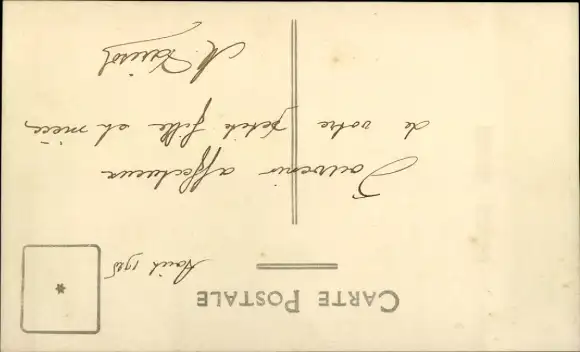 CARTE POSTALE
Août 1925
Souvenir affectueux
de votre petite fille et nièce
M.